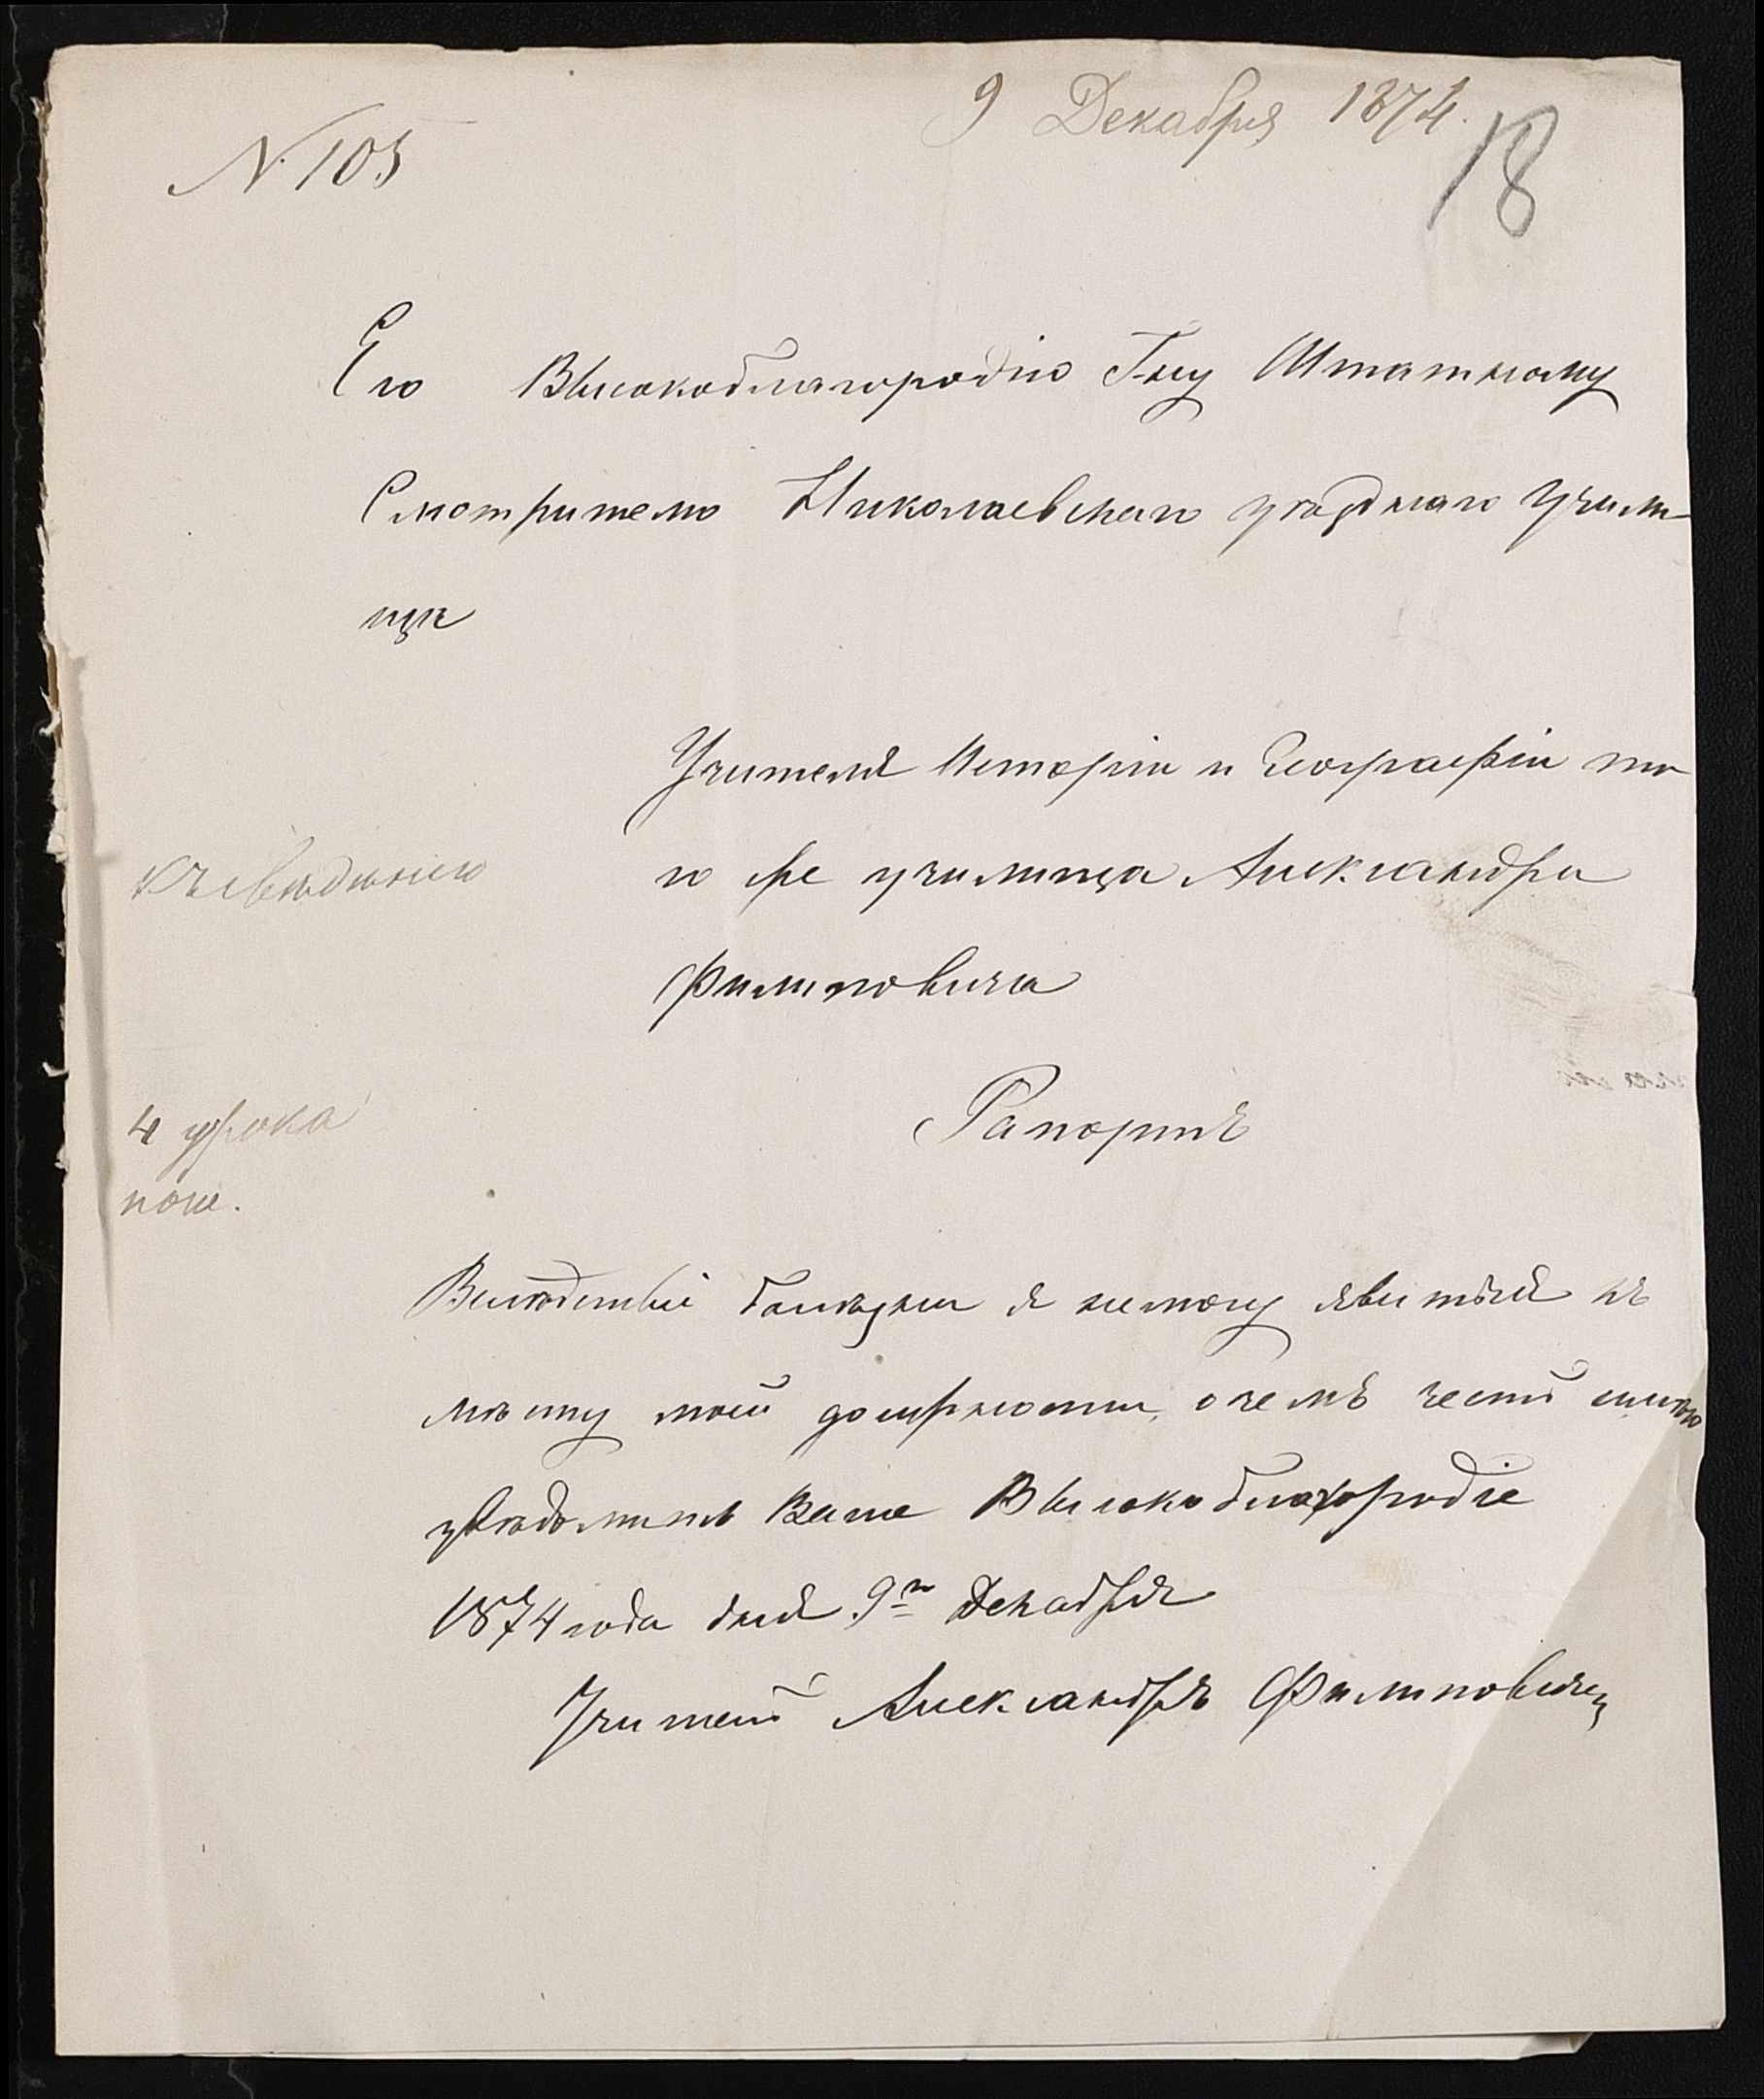 9 Декабря 1874.
N. 105
18
Его Высокоблагородію Г-ну Штатному
Смотрителю Николаевскаго уѣзднаго Учили-
ща
Учителя Исторіи и Географіи то
го же училища Александра
Филиповича
къ свѣдѣнію
Рапортъ
4 урока
Вслѣдствіе болѣзни я немогу явиться къ
мѣсту моей должности, о чемъ честь имѣю
увѣдомить Ваше Высокоблагородіе
1874 года дня 9го Декабря
Учитель Александръ Филиповичъ